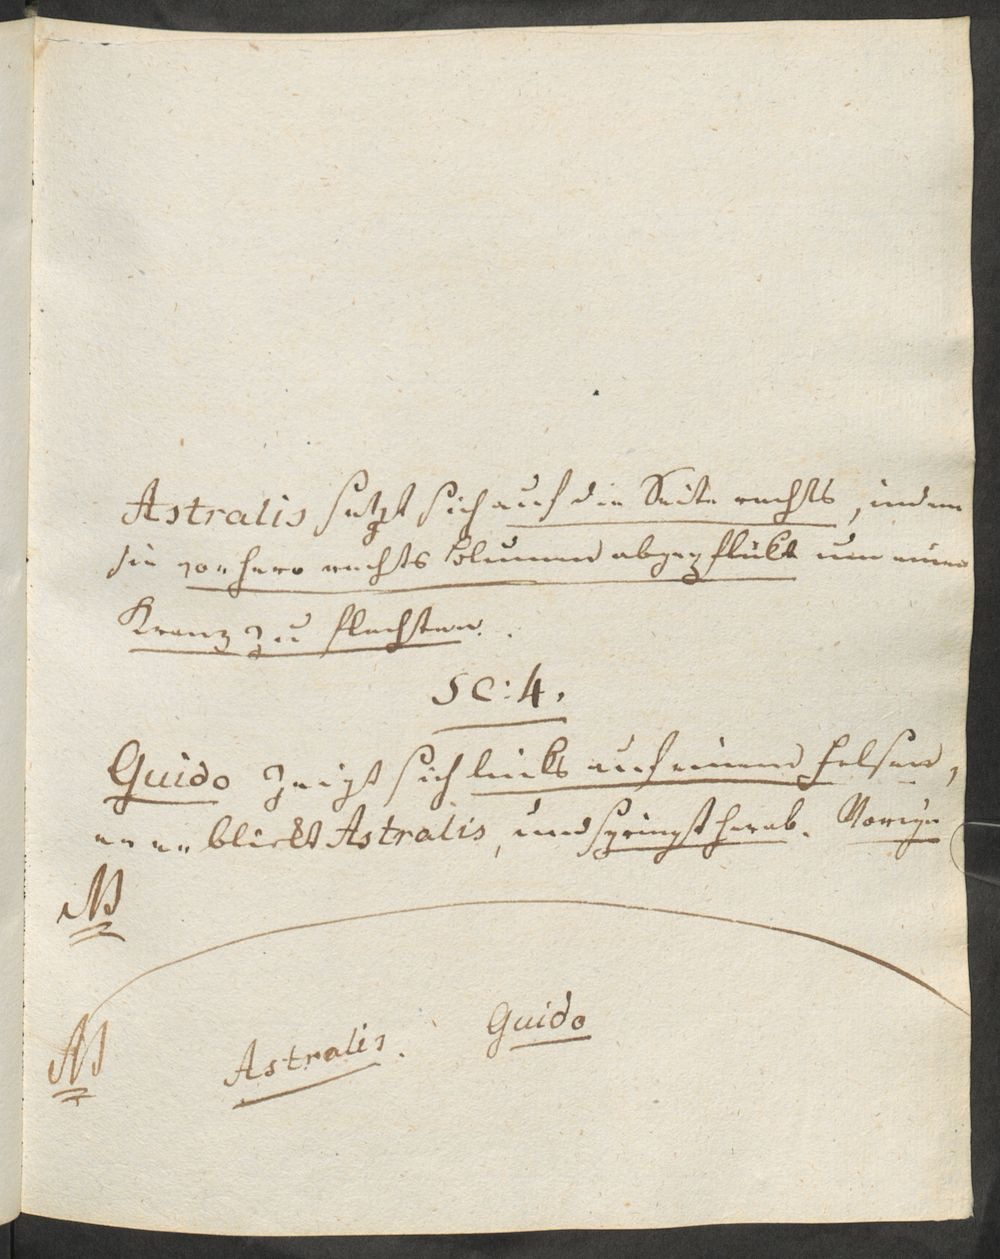 Astralis setzt sich auf die Seite rechts, indem
sie vorhero rechts Blumen abgepflükt um einen
Kranz zu flechten.
SC: 4.
Guido zeigt sich links auf einem Felsen,
er erblickt Astralis, und springt herab. Vorige
NB
NB
Astralis. Guido